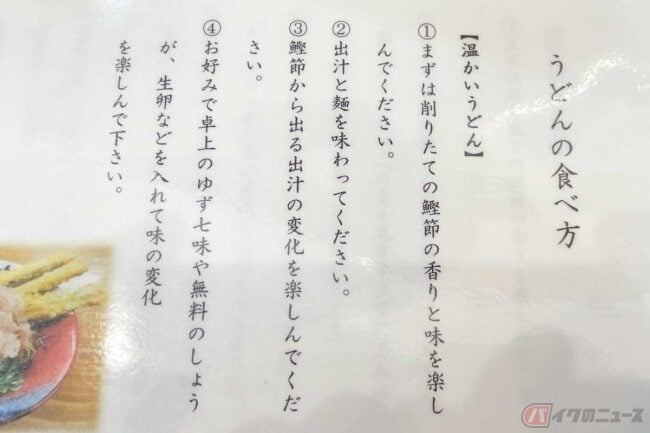 うどんの食べ方
【温かいうどん】
①まずは削りたての鰹節の香りと味を楽し
んでください。
②出汁と麺を味わってください。
③鰹節から出る出汁の変化を楽しんでくだ
さい。
④お好みで卓上のゆず七味や無料のしょう
が、生卵などを入れて味の変化
を楽しんで下さい。
バイクのニュース